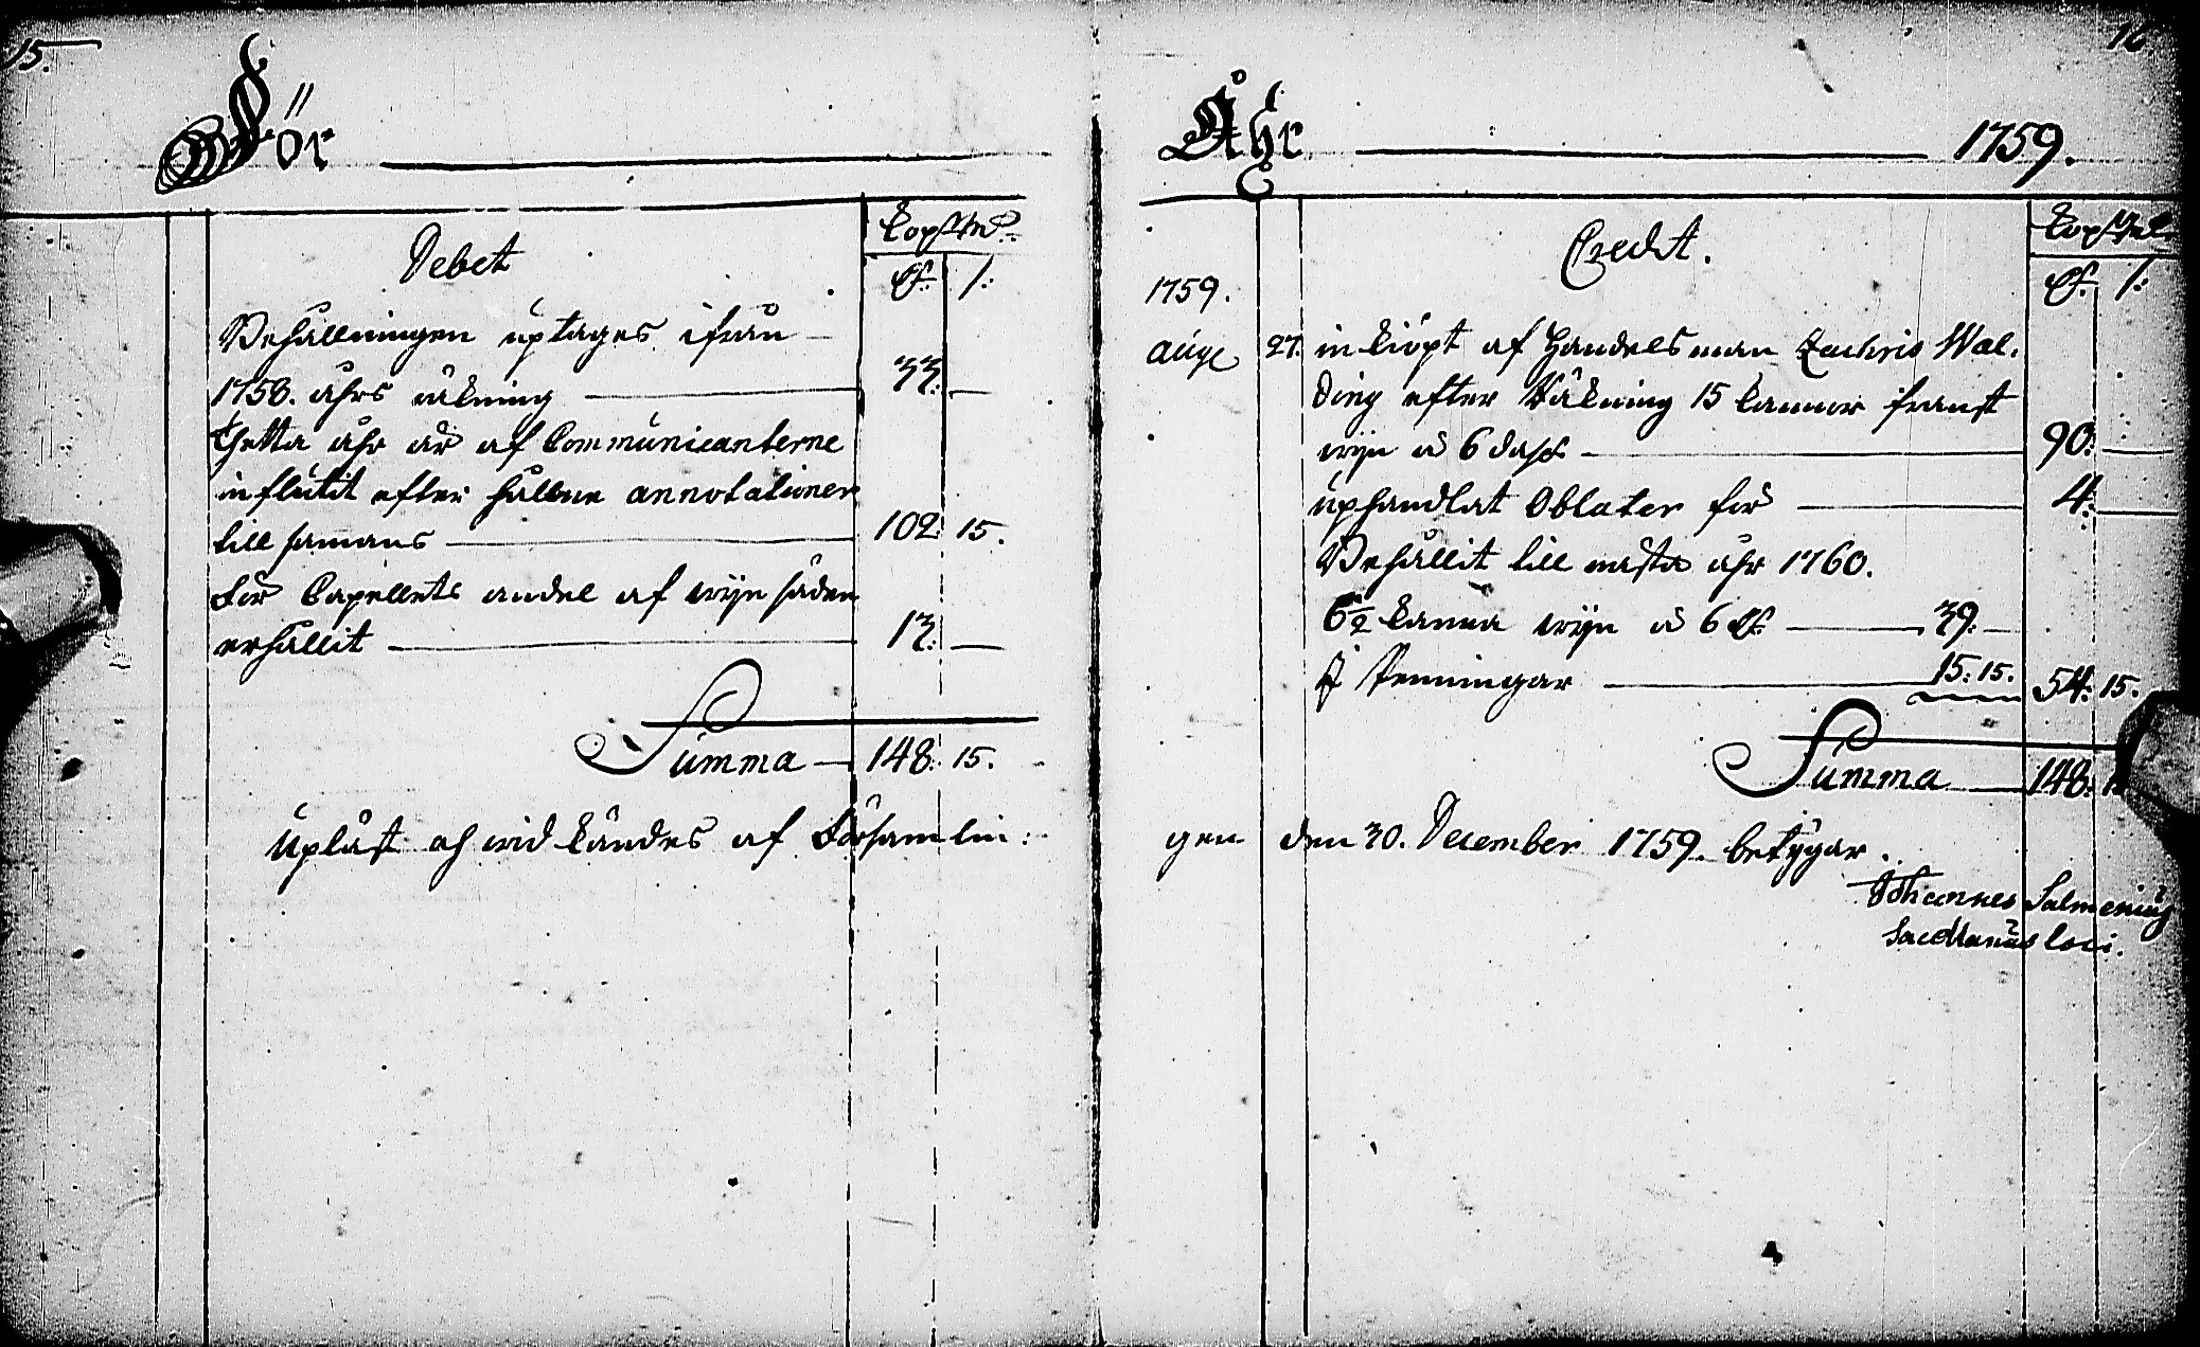 15.
För
Debet
Kopp:mt
D: /:
Behållningen uptages ifrån
1758. åhrs räkning 33: —
Thetta åhr är af Communicanterne
influtit efter hållne annotationer
till samans 102: 15.
För Capellets andel af wijn säden
erhållit 13: —
Summa — 148: 15.
Upläst och wid kändes af Församlin:
16
Åhr 1759.
Credit.
D: /:
1759.
Aug 27. inkiöpt af Handelsman Zachris Wal-
ding efter Räkning 15 kannor franst
wijn à 6 dalr 90: —
uphandlat Oblater för 4: —
Behållit till nästa åhr 1760.
6½ kanna wijn à 6 D: 39: —
J Penningar 15: 15. 54: 15.
Summa 148:
gen den 30. December 1759. betygar.
Johannes Salmenius
Sacellanus loci.